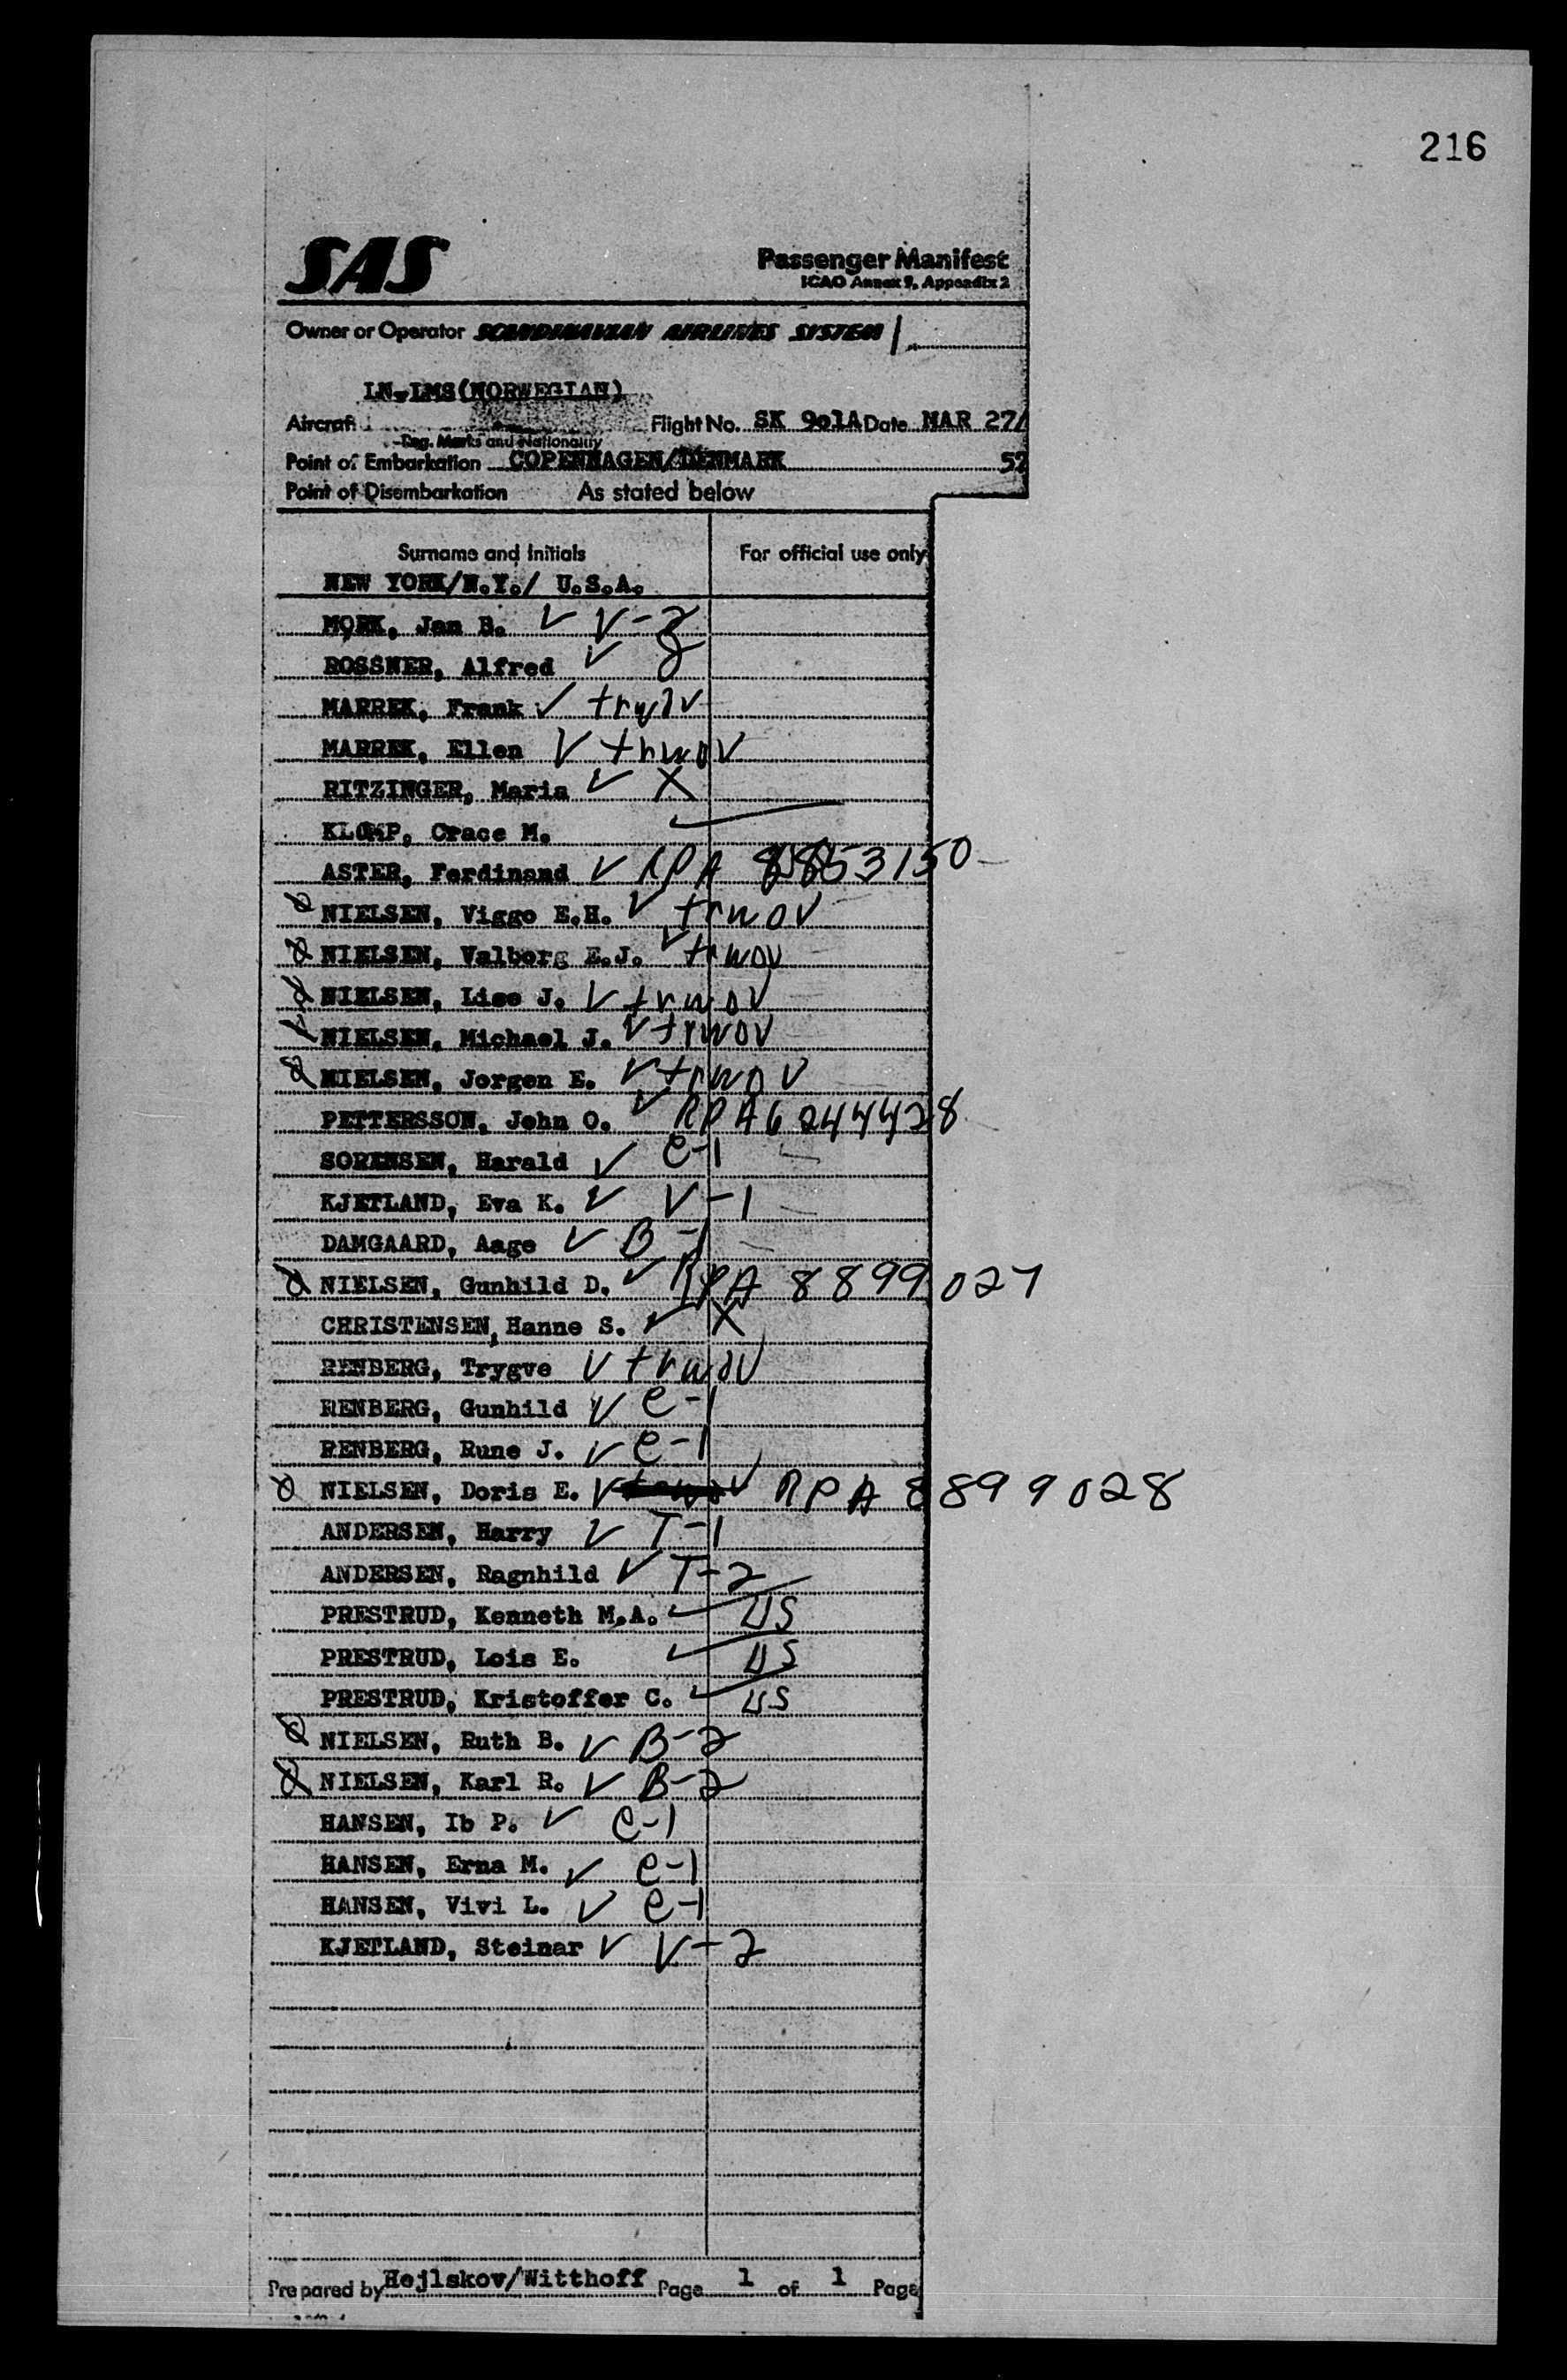 216
SAS Passenger Manifest
ICAO Annex 9, Appendix 2
Owner or Operator SCANDINAVIAN AIRLINES SYSTEM
LN-LMS(NORWEGIAN)
Aircraft Flight No. SK 901A Date MAR 27/
Reg. Marks and Nationality
Point of Embarkation COPENHAGEN/DENMARK 52
Point of Disembarkation As stated below
Surname and Initials For official use only
NEW YORK/N.Y./ U.S.A.
MORK, Jan B. ✓ V-2
ROSSNER, Alfred ✓
MARREK, Frank ✓ trwov
MARREK, Ellen ✓ trwov
RITZINGER, Maria ✓ X
KLOMP, Crace M. ✓
ASTER, Ferdinand ✓ RPA 8853150
NIELSEN, Viggo E.H. ✓ trwov
NIELSEN, Valborg E.J. ✓ trwov
NIELSEN, Lise J. ✓ trwov
NIELSEN, Michael J. ✓ trwov
NIELSEN, Jorgen E. ✓ trwov
PETTERSSON, John O. ✓ RPA 6244428
SORENSEN, Harald ✓ C-1
KJETLAND, Eva K. ✓ V-1
DAMGAARD, Aage ✓ B-1
NIELSEN, Gunhild D. ✓ RPA 8899027
CHRISTENSEN, Hanne S. ✓ X
RENBERG, Trygve ✓ trwov
RENBERG, Gunhild ✓ C-1
RENBERG, Rune J. ✓ C-1
NIELSEN, Doris E. ✓ RPA 8899028
ANDERSEN, Harry ✓ T-1
ANDERSEN, Ragnhild ✓ T-2
PRESTRUD, Kenneth M.A. ✓ US
PRESTRUD, Lois E. ✓ US
PRESTRUD, Kristoffer C. ✓ US
NIELSEN, Ruth B. ✓ B-2
NIELSEN, Karl R. ✓ B-2
HANSEN, Ib P. ✓ C-1
HANSEN, Erna M. ✓ C-1
HANSEN, Vivi L. ✓ C-1
KJETLAND, Steinar ✓ V-2
Prepared by Hejlskov/Witthoff Page 1 of 1 Page